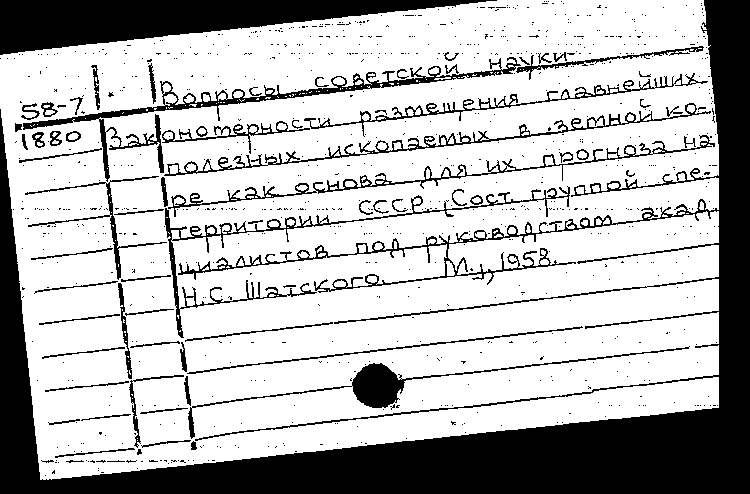 Вопросы советской науки
58-7
1880 Закономерности размещения главнейших
полезных ископаемых в земной ко-
ре как основа для их прогноза на
территории СССР. [Сост. группой спе-
циалистов под руководством акад.
Н.С. Шатского. М.], 1958.